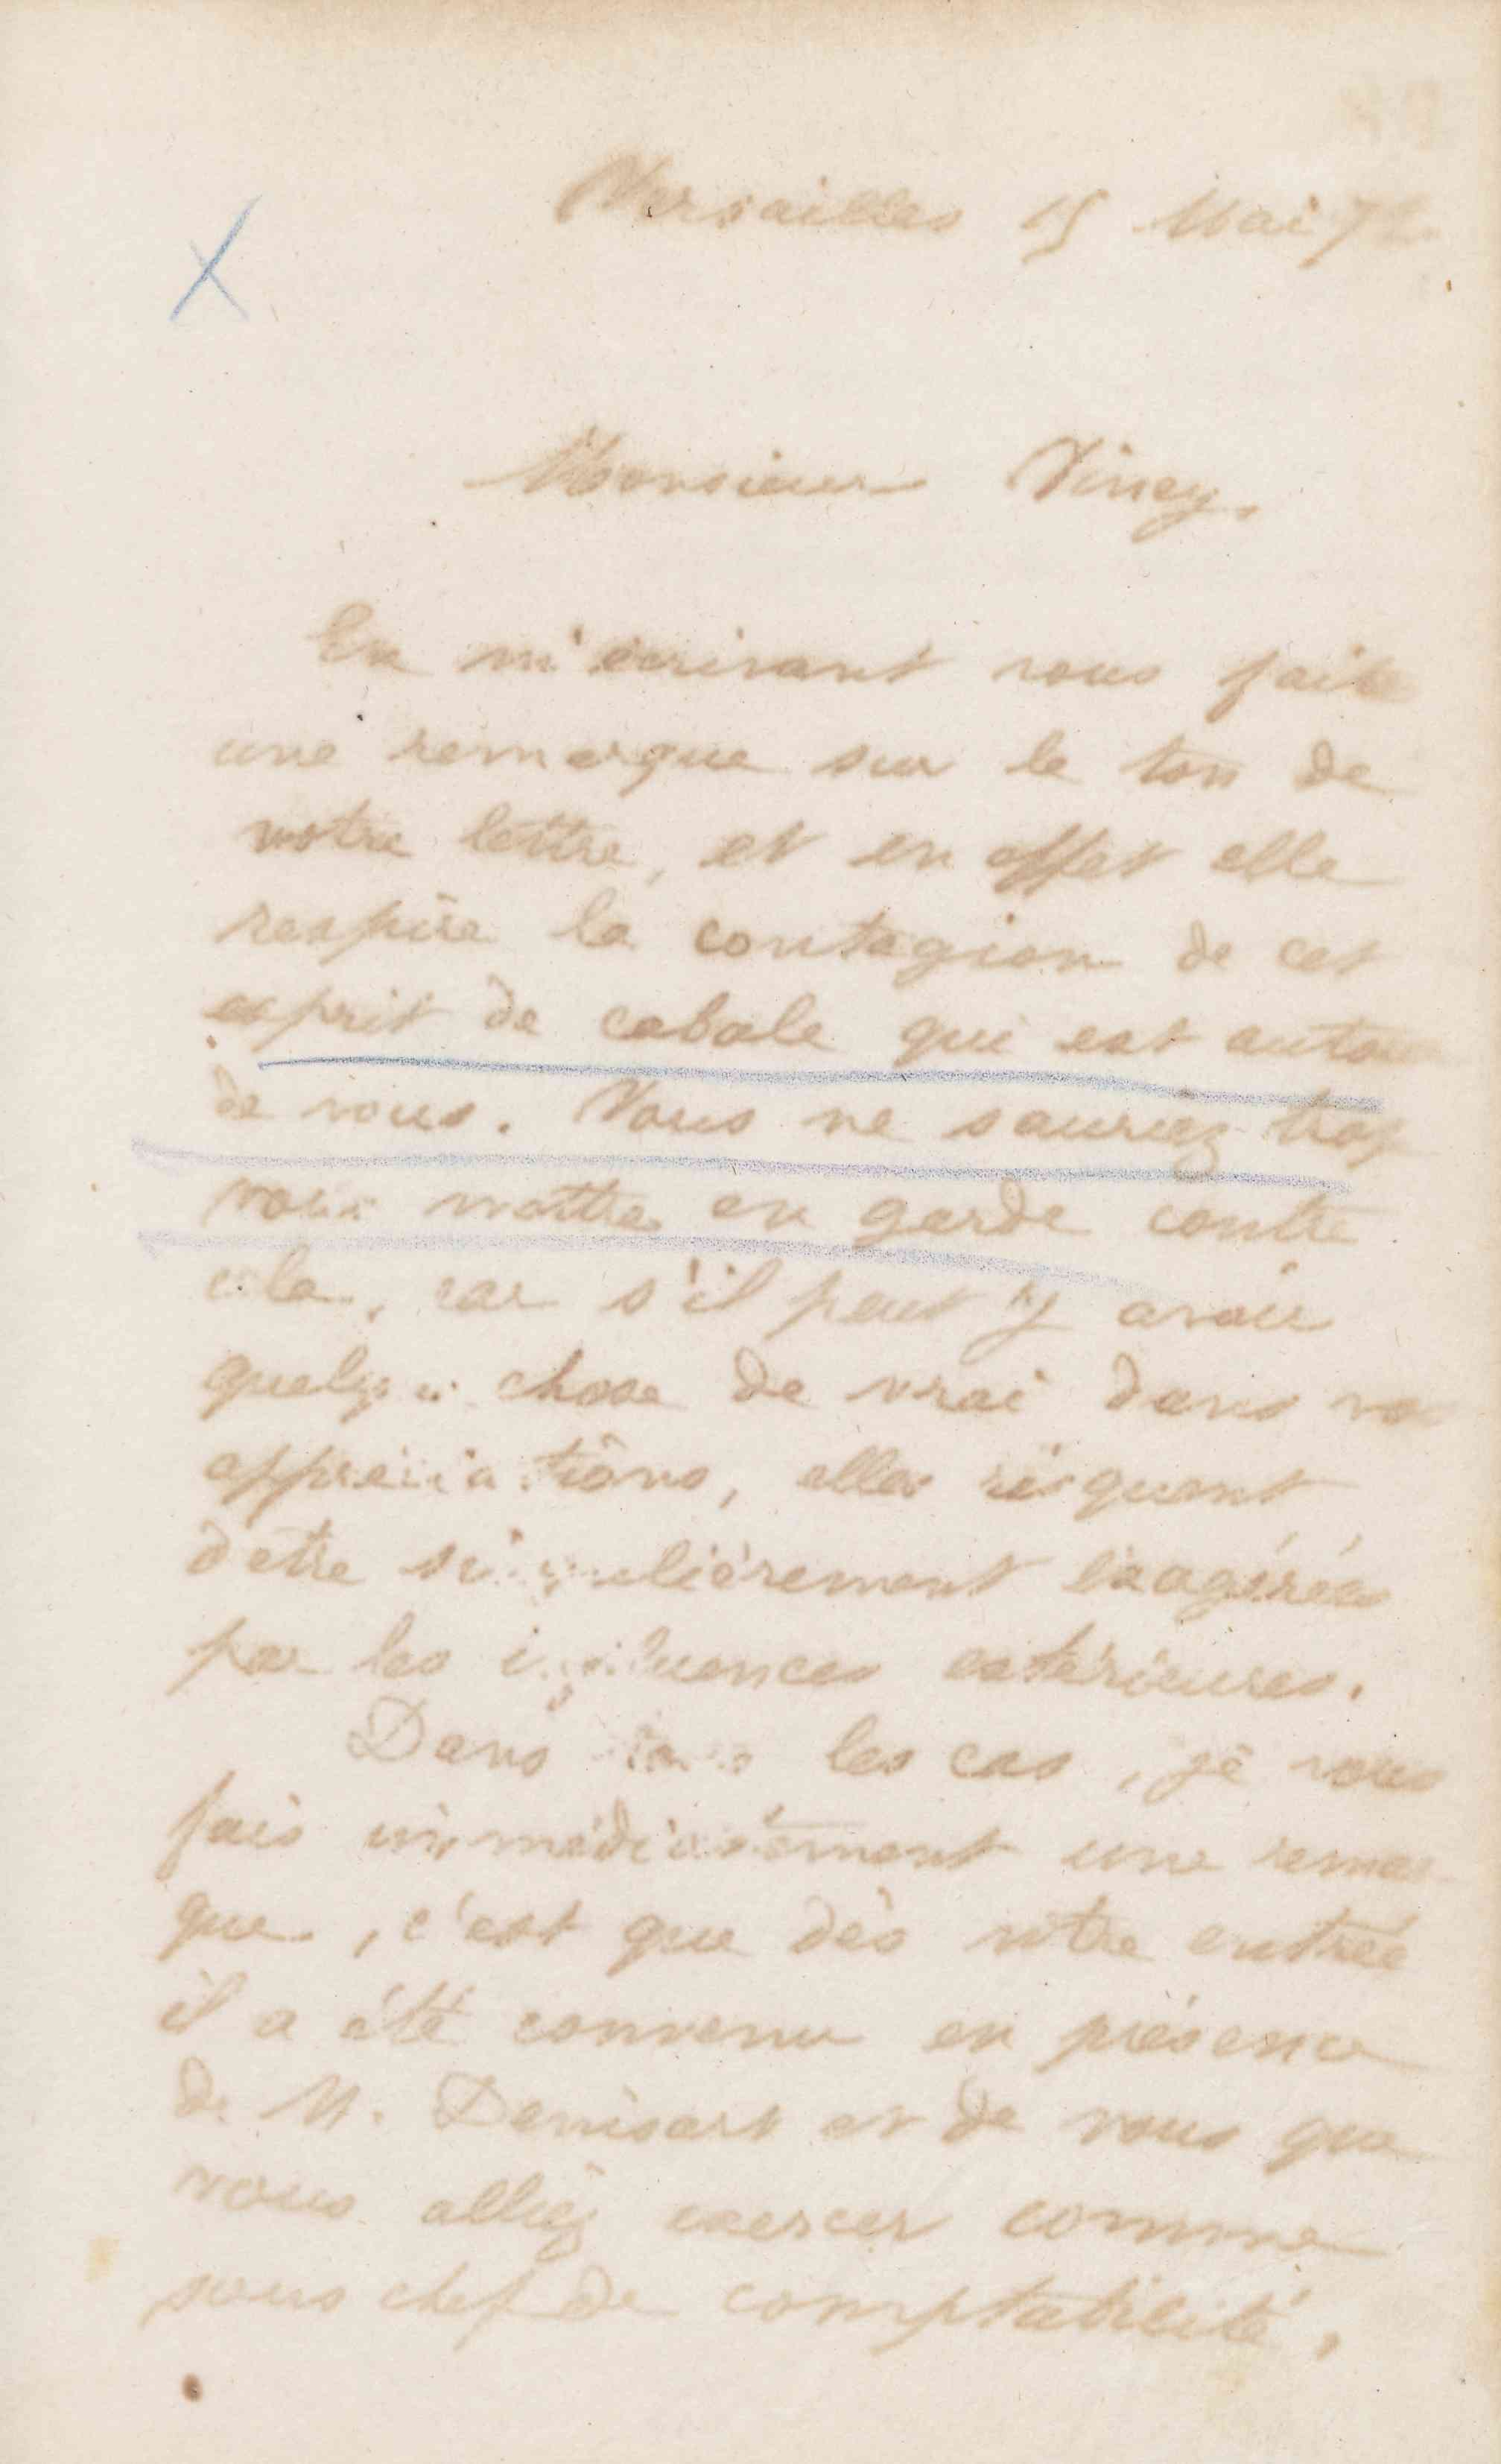 Versailles 15 Mai 7
Monsieur Viney,
En m'écrivant vous faite
une remarque sur le ton de
votre lettre, et en effet elle
respire la contagion de cet
esprit de cabale qui est autour
de vous. Vous ne sauriez trop
vous mettre en garde contre
cela, car s'il peut y avoir
quelque chose de vrai dans vos
appréciations, elles risquent
d'être singulièrement exagérées
par les influences extérieures.
Dans tous les cas, je vous
fais immédiatement une remar
que, c'est que dès votre entrée
il a été convenu en présence
de M. Denisart et de vous que
vous alliez exercer comme
sous chef de comptabilité,